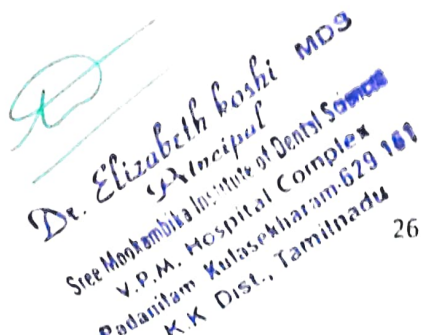 Dr. Elizabeth koshi MDS
Principal
Sree Mookambika Institute of Dental Sciences
V.P.M. Hospital Complex
Padanilam Kulasekharam-629 161
K.K Dist., Tamilnadu
26